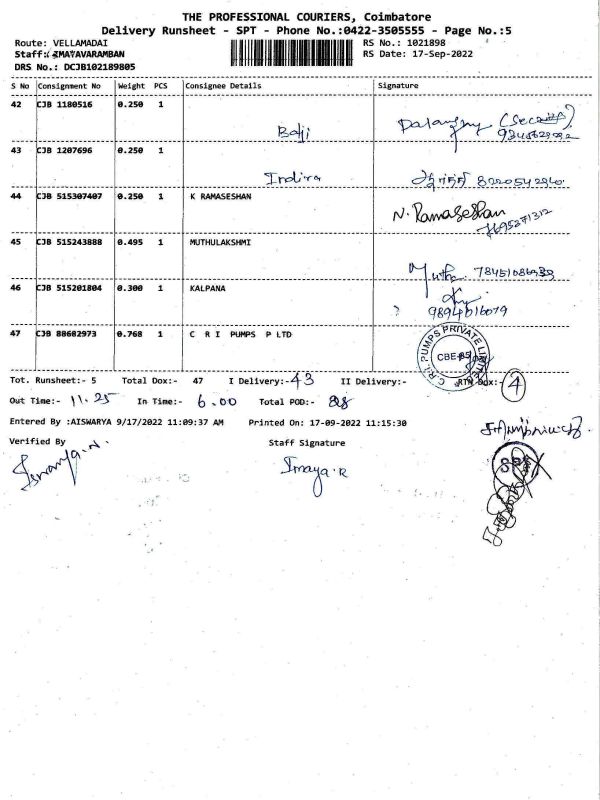 THE PROFESSIONAL COURIERS, Coimbatore
Delivery Runsheet - SPT - Phone No.:0422-3505555 - Page No.:5
Route: VELLAMADAI RS No.: 1021898
Staff: RS Date: 17-Sep-2022
DRS No.: DCJB102189805
S No Consignment No Weight PCS Consignee Details Signature
42 CJB 1180516 0.250 1
Balji
43 CJB 1207696 0.250 1
Indira
44 CJB 515307407 0.250 1 K RAMASESHAN
N. Ramaseshan
7695271312
45 CJB 515243888 0.495 1 MUTHULAKSHMI
46 CJB 515201804 0.300 1 KALPANA
? 9894016079
47 CJB 88682973 0.768 1 C R I PUMPS P LTD
C.R.I. PUMPS PRIVATE LIMITED
CBE
Tot. Runsheet:- 5 Total Dox:- 47 I Delivery:- 43 II Delivery:- RTN Dox:- 4
Out Time:- 11.25 In Time:- 6.00 Total POD:-
Entered By :AISWARYA 9/17/2022 11:09:37 AM Printed On: 17-09-2022 11:15:30
Verified By Staff Signature
Imaya.R